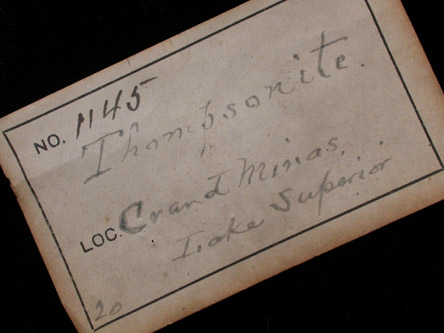 NO. 1145
Thompsonite.
LOC. Grand Minas,
Lake Superior
20